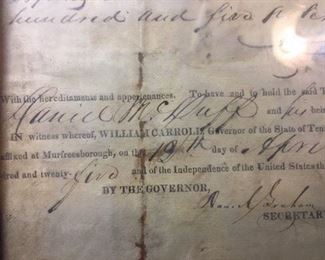 hundred and five
With the hereditaments and appertenances. To have and to hold the said T
Daniel McDuff and his he
IN witness whereof, WILLIAM CARROLL, Governor of the State of Ten
affixed at Murfreesborough, on the 19th day of Apri
dred and twenty-five and of the Independence of the United States th
BY THE GOVERNOR,
Dan. Graham
SECRETAR